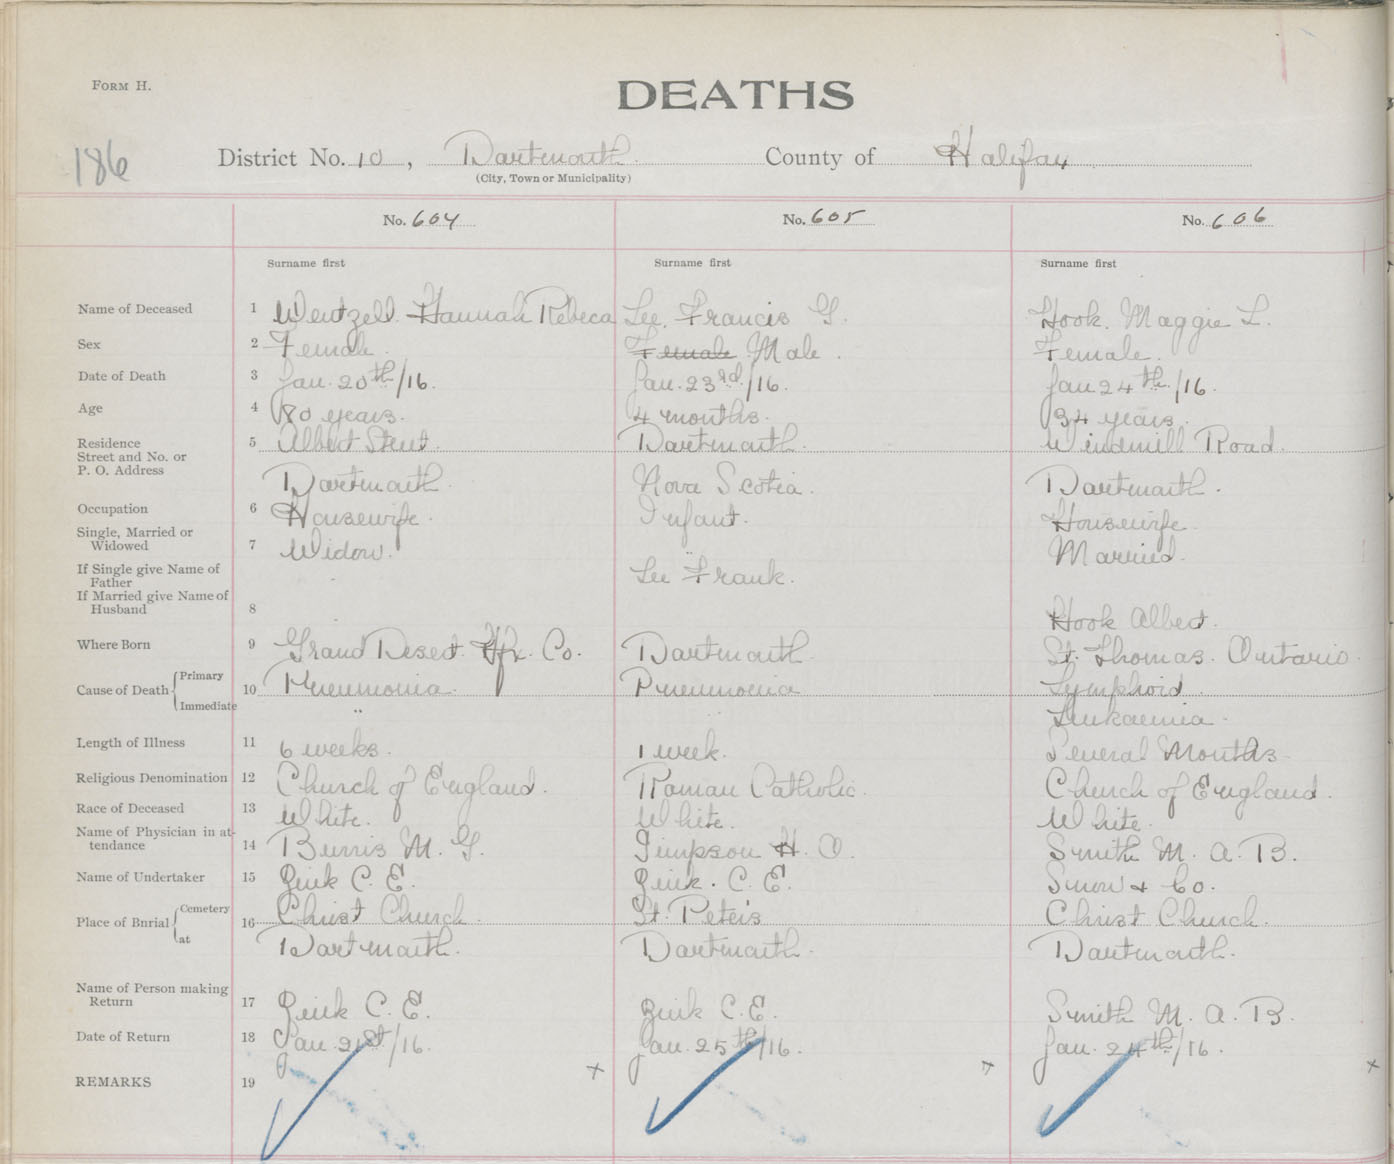 FORM H.
DEATHS
186
District No. 10, Dartmouth County of Halifax
(City, Town or Municipality)
No. 604 No. 605 No. 606
Surname first Surname first Surname first
Name of Deceased 1 Wentzell Hannah Rebeca Lee, Francis G. Hook, Maggie L.
Sex 2 Female. Female Male. Female.
Date of Death 3 Jan. 20th/16. Jan. 23rd/16. Jan 24th/16.
Age 4 80 years. 4 months. 34 years.
Residence 5 Albert Street. Dartmouth. Windmill Road.
Street and No. or
P. O. Address Dartmouth. Nova Scotia. Dartmouth.
Occupation 6 Housewife. Infant. Housewife
Single, Married or
Widowed 7 Widow. " Married.
If Single give Name of
Father Lee Frank.
If Married give Name of
Husband 8 Hook Albert.
Where Born 9 Grand Desert. Hfx. Co. Dartmouth. St. Thomas. Ontario.
Cause of Death Primary 10 Pneumonia. Pneumonia Lymphoid.
Immediate " Leukaemia.
Length of Illness 11 6 weeks. 1 week. Several Months
Religious Denomination 12 Church of England. Roman Catholic. Church of England.
Race of Deceased 13 White. White. White.
Name of Physician in at-
tendance 14 Burris M. G. Simpson H. O. Smith M. A. B.
Name of Undertaker 15 C. E. C. E. Snow & Co.
Place of Burial Cemetery 16 Christ Church. St. Peter's Christ Church.
at Dartmouth. Dartmouth. Dartmouth.
Name of Person making
Return 17 C. E. C. E. Smith M. A. B.
Date of Return 18 Jan. 21st/16. Jan. 25th/16. Jan. 24th/16.
REMARKS 19 x x x